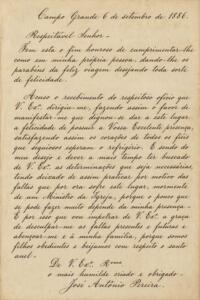 Campo Grande 6 de setembro de 1886.
Respeitável Senhor -
Tem esta o fim honroso de cumprimentar-lhe
como em minha própria pessoa, dando-lhe os
parabens da feliz viagem desejando toda sorte
de felicidade.
Acuso o recebimento do respeitôso oficio que
V. Exª. dirigiu-me, fazendo assim o favor de
manifestar-me que dignou-se dar a este lugar
a felicidade de possuir a Vossa Excelente presença,
satisfazendo assim os corações de todos os fiéis
que sequiosos esperam o refrigério. E sendo do
meu desejo e dever a mais tempo ter buscado
a V. Exª. as determinações que seja necessárias
tendo deixado de assim praticar, por motivo das
faltas que por ora sofre este lugar, mormente
de um Ministro da Igreja, porque o pouco que
se pode fazer muito depende da minha presença.
E por isso que vou impetrar de V. Exª. a graça
de desculpar-me as faltas presentes e futuras e
abençoar-me e à minha família, porque somos
filhos obedientes e beijamos com respeito o santo
anel.
De V. Exª. Rma
o mais humilde criado e obrigado -
José Antônio Pereira.